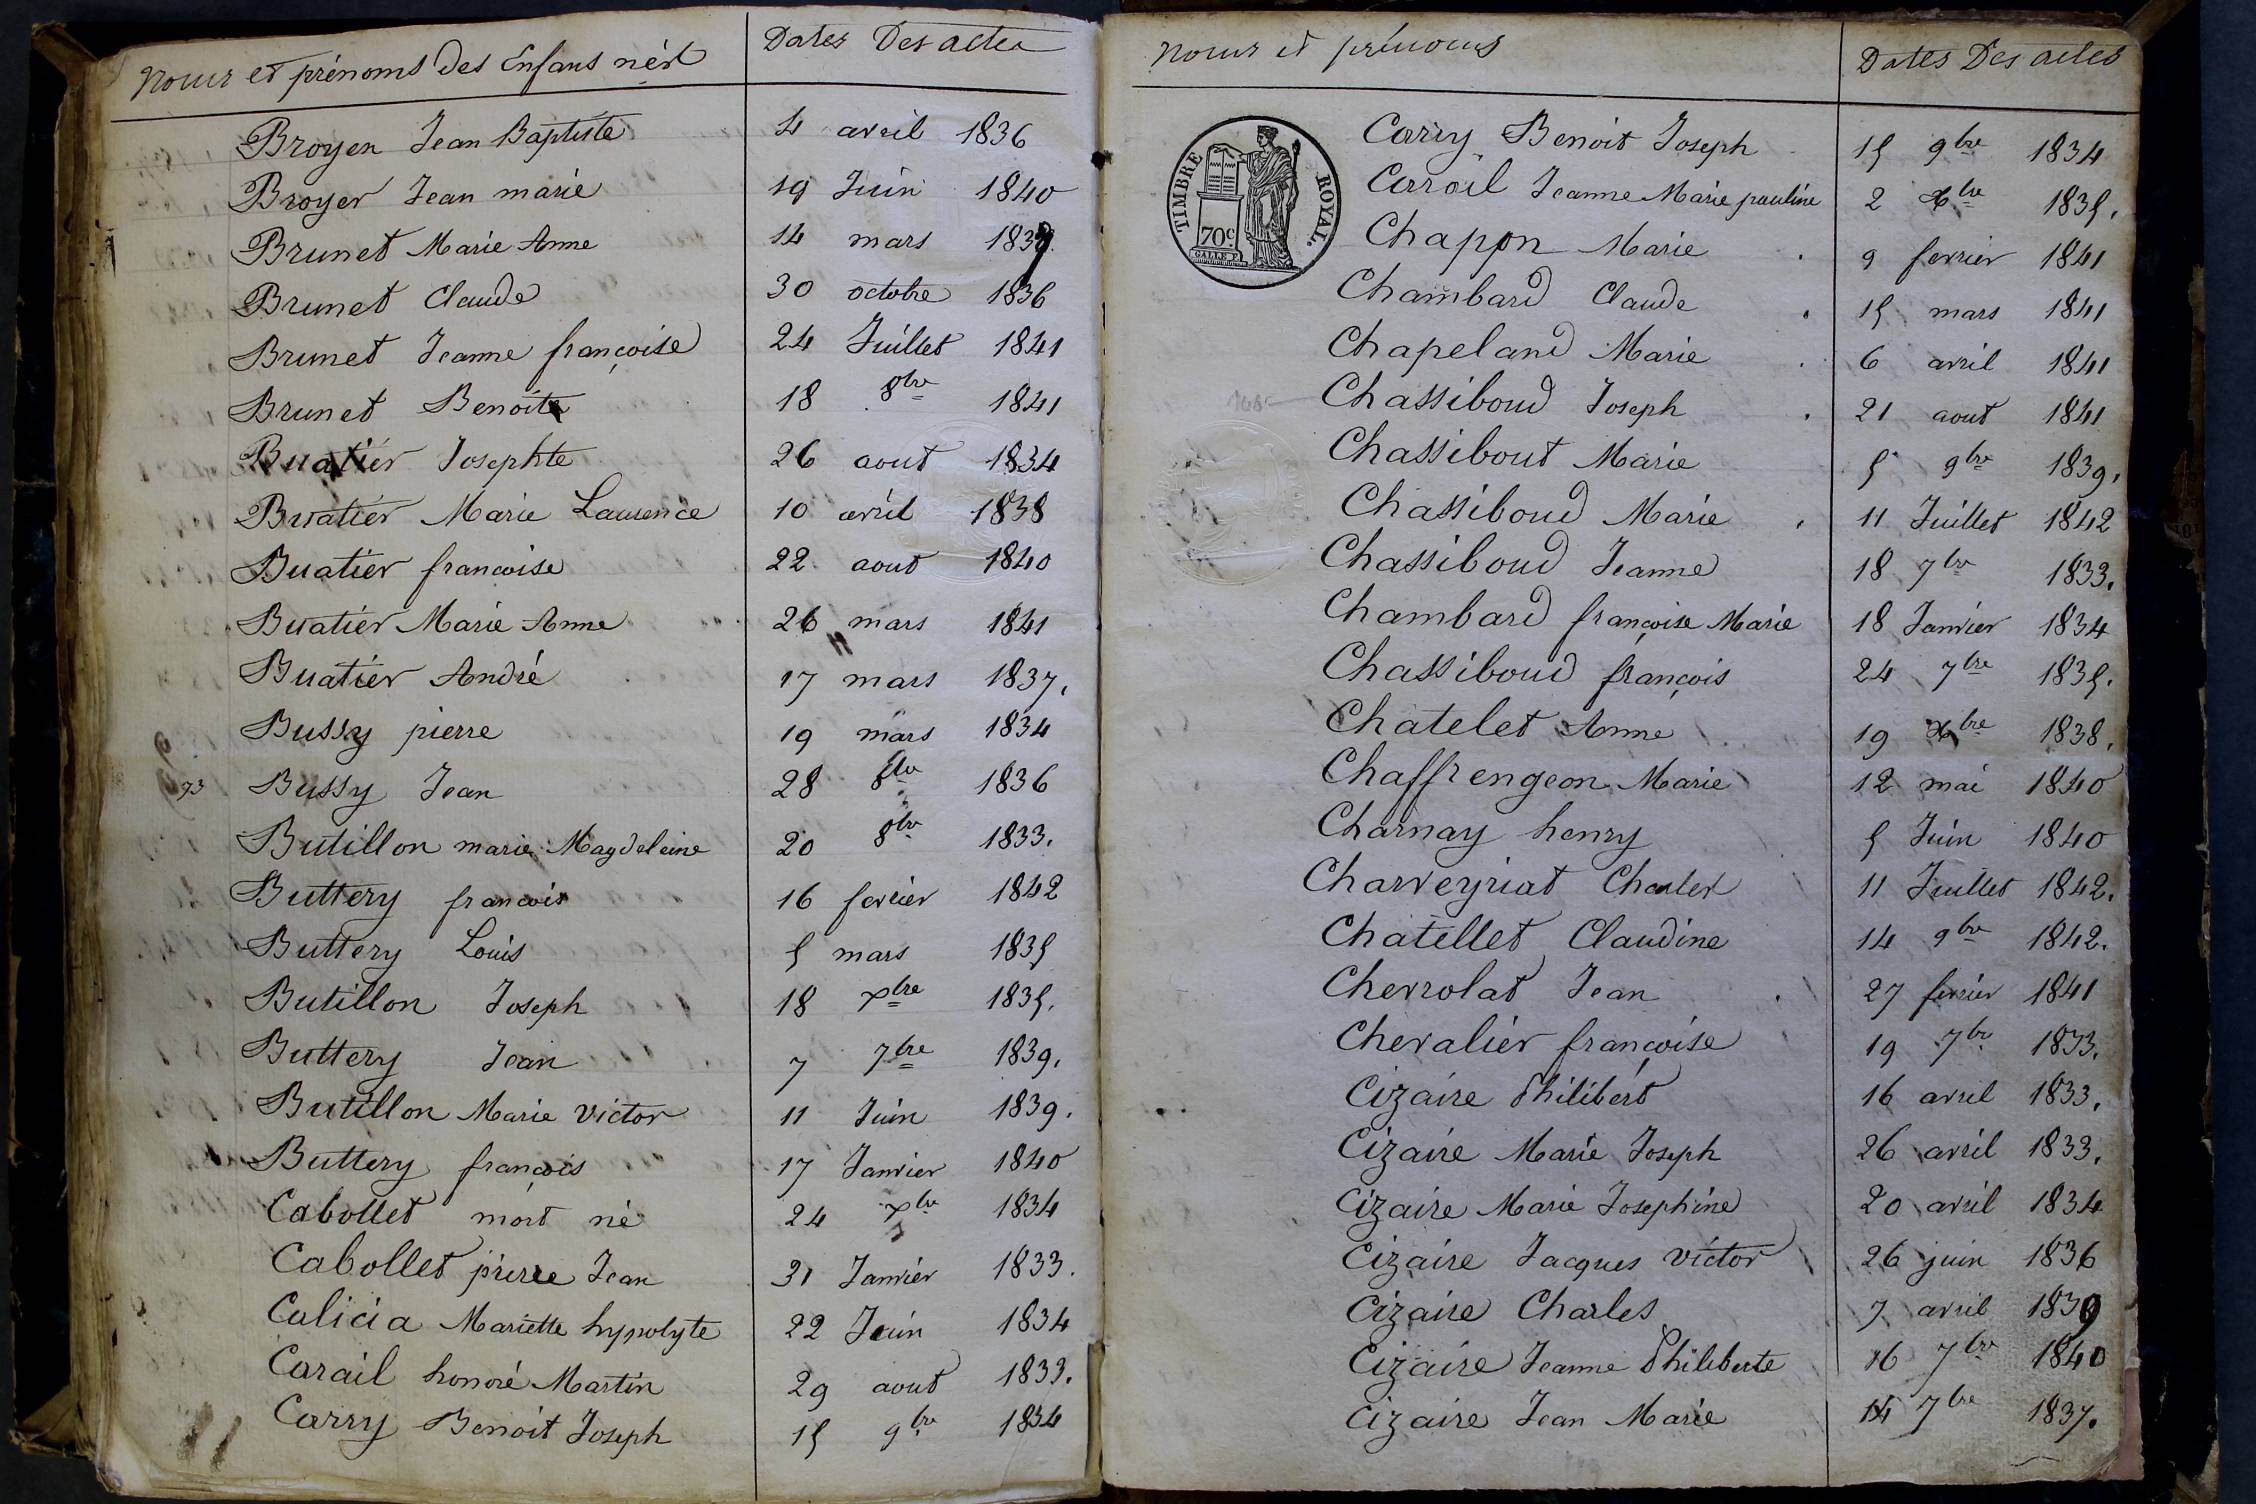 Noms et prénoms des Enfans nés Dates Des actes
Broyer Jean Baptiste 4 avril 1836
Broyer Jean marie 19 Juin 1840
Brunet Marie Anne 14 mars 1839
Brunet Claude 30 octobre 1836
Brunet Jeanne françoise 24 Juillet 1841
Brunet Benoite 18 8bre 1841
Buatier Josephte 26 aout 1834
Buatier Marie Laurence 10 avril 1838
Buatier francoise 22 aout 1840
Buatier Marie Anne 26 mars 1841
Buatier André 17 mars 1837.
Bussy pierre 19 mars 1834
93 Bussy Jean 28 8bre 1836
Butillon marie Magdeleine 20 8bre 1833.
Buttery francois 16 fevrier 1842
Buttery Louis 5 mars 1835
Butillon Joseph 18 Xbre 1835.
Buttery Jean 7 7bre 1839.
Butillon Marie victor 11 Juin 1839.
Buttery françois 17 Janvier 1840
Cabollet mort né 24 Xbre 1834
Cabollet pierre Jean 31 Janvier 1833.
Calicia Mariette hypolyte 22 Juin 1834
Carail honoré Martin 29 aout 1833.
Carry Benoit Joseph 15 9bre 1834
Noms et prénoms Dates Des actes
TIMBRE ROYAL.
70c
Carry Benoit Joseph 15 9bre 1834
Carroil Jeanne Marie pauline 2 Xbre 1835.
Chappon Marie 9 fevrier 1841
Chambard Claude 15 mars 1841
Chapeland Marie 6 avril 1841
Chassiboud Joseph 21 aout 1841
Chassibout Marie 5 9bre 1839.
Chassiboud Marie 11 Juillet 1842
Chassiboud Jeanne 18 7bre 1833.
Chambard françoise Marie 18 Janvier 1834
Chassiboud françois 24 7bre 1835.
Chatelet Anne 19 Xbre 1838.
Chaffrengeon Marie 12 mai 1840
Charnay henry 5 Juin 1840
Charveyriat Charles 11 Juillet 1842.
Chatellet Claudine 14 9bre 1842.
Chevrolat Jean 27 fevrier 1841
Chevalier françoise 19 7bre 1833.
Cizaire Philibert 16 avril 1833.
Cizaire Marie Joseph 26 avril 1833.
Cizaire Marie Josephine 20 avril 1834
Cizaire Jacques victor 26 juin 1836
Cizaire Charles 7 avril 1839
Cizaire Jeanne Philiberte 16 7bre 1840
Cizaire Jean Marie 14 7bre 1837.